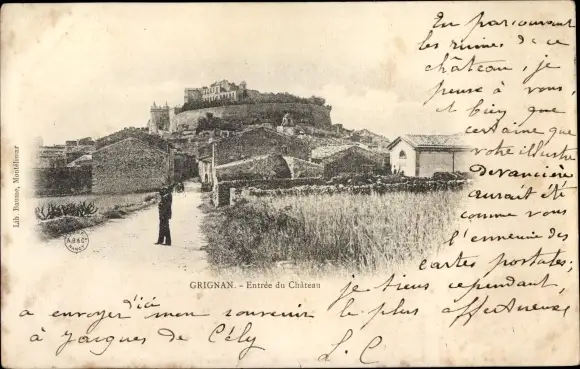 En parcourant
les ruines de ce
château, je
pense à vous,
et bien que
certaine que
votre illustre
devancière
aurait été
comme vous
l'ennemie des
cartes postales,
je tiens cependant,
à envoyer d'ici mon souvenir le plus affectueux
à Jacques de Cély
L. C.
GRIGNAN. - Entrée du Château
Lib. Montélimar